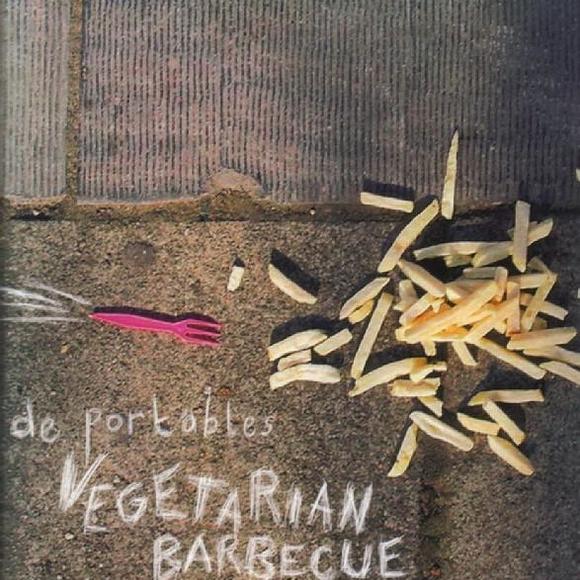 de portables
VEGETARIAN
BARBECUE